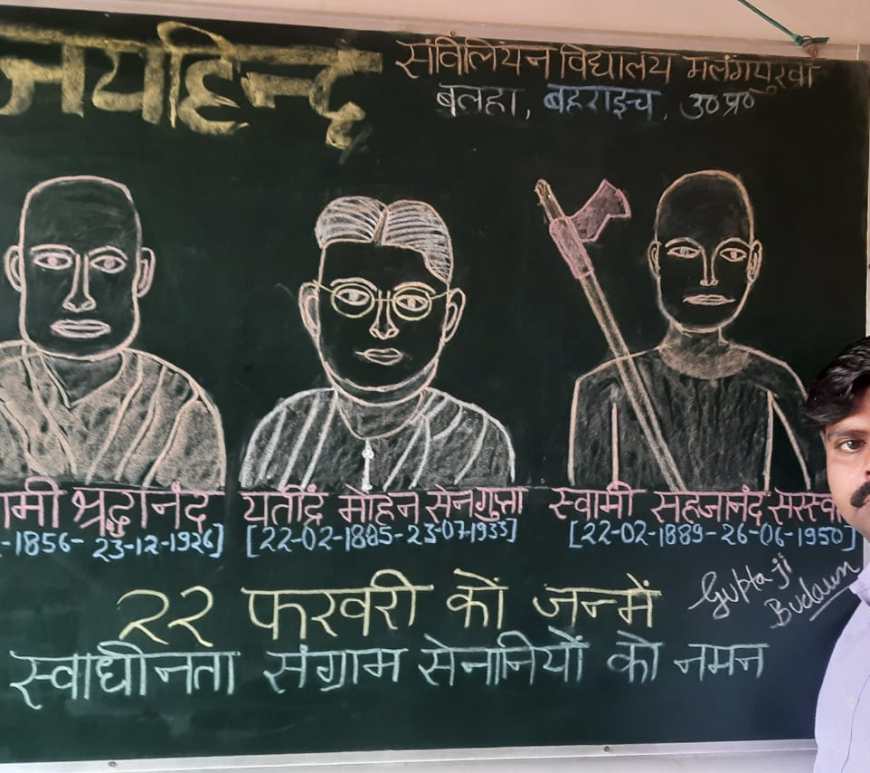 जयहिन्द
संविलियन विद्यालय मलंगपुरवा
बलहा, बहराइच, उ०प्र०
ामी श्रद्धानंद
-1856- 23-12-1926]
यतींद्र मोहन सेनगुप्ता
[22-02-1885-23-07-1933]
स्वामी सहजानंद सरस्व
[22-02-1889-26-06-1950]
Gupta ji
Budaun
२२ फरवरी को जन्में
स्वाधीनता संग्राम सेनानियों को नमन